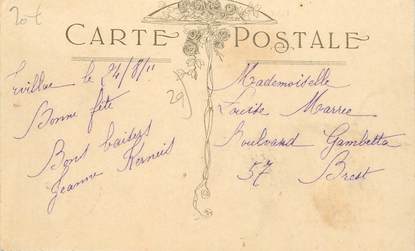 20€
CARTE POSTALE
le 24/8/11
29
Bonne fête
Bons baisers
Jeanne Kerneis
Mademoiselle
Louise Marrec
Boulevard Gambetta
57 Brest